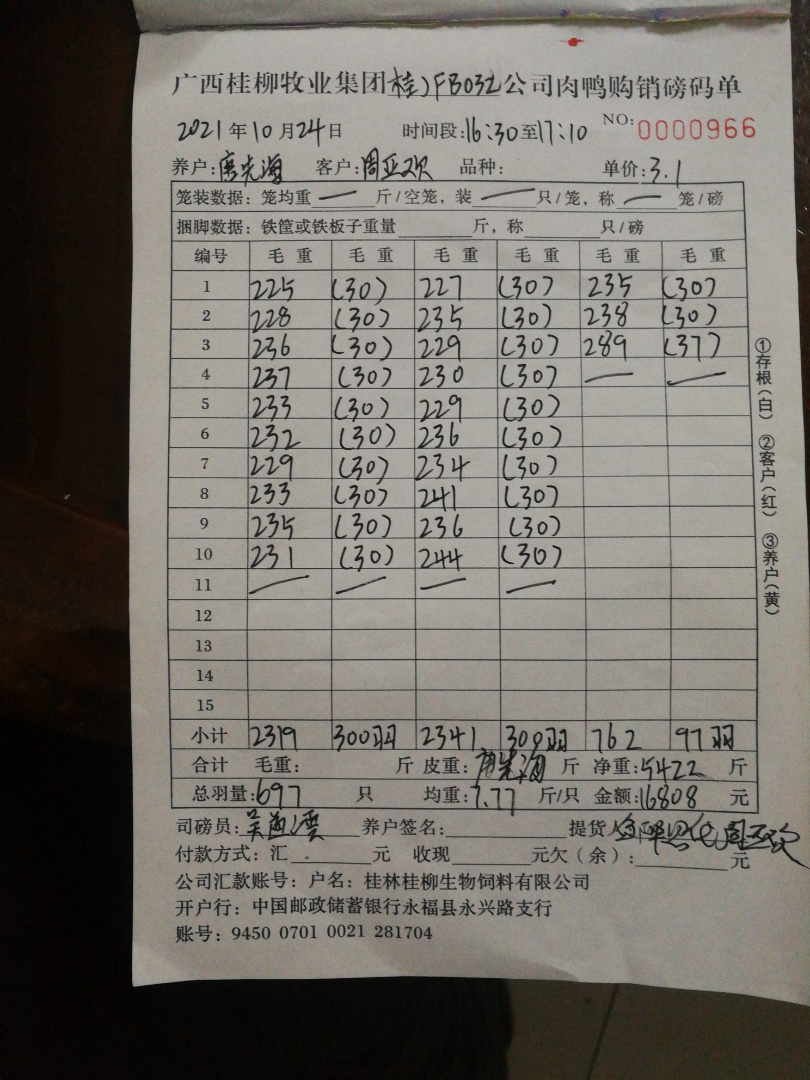 广西桂柳牧业集团桂林FB032公司肉鸭购销磅码单
2021年10月24日 时间段:16:30至17:10 NO:0000966
养户:唐先海 客户:周亚欢 品种: 单价:3.1
笼装数据: 笼均重 — 斤/空笼, 装 — 只/笼, 称 — 笼/磅
捆脚数据: 铁筐或铁板子重量 斤, 称 只/磅
编号 毛重 毛重 毛重 毛重 毛重 毛重
1 225 (30) 227 (30) 235 (30)
2 228 (30) 235 (30) 238 (30)
3 236 (30) 229 (30) 289 (37)
4 237 (30) 230 (30) — —
5 233 (30) 229 (30)
6 232 (30) 236 (30)
7 229 (30) 234 (30)
8 233 (30) 241 (30)
9 235 (30) 236 (30)
10 231 (30) 244 (30)
11 — — — —
12
13
14
15
小计 2319 300羽 2341 300羽 762 97羽
合计 毛重: 斤 皮重: 唐先海 斤 净重:5422 斤
总羽量:697 只 均重:7.77 斤/只 金额:16808 元
司磅员: 养户签名: 提货人 周亚欢
付款方式: 汇 元 收现 元欠(余): 元
公司汇款账号: 户名: 桂林桂柳生物饲料有限公司
开户行: 中国邮政储蓄银行永福县永兴路支行
账号: 9450 0701 0021 281704
①存根(白) ②客户(红) ③养户(黄)